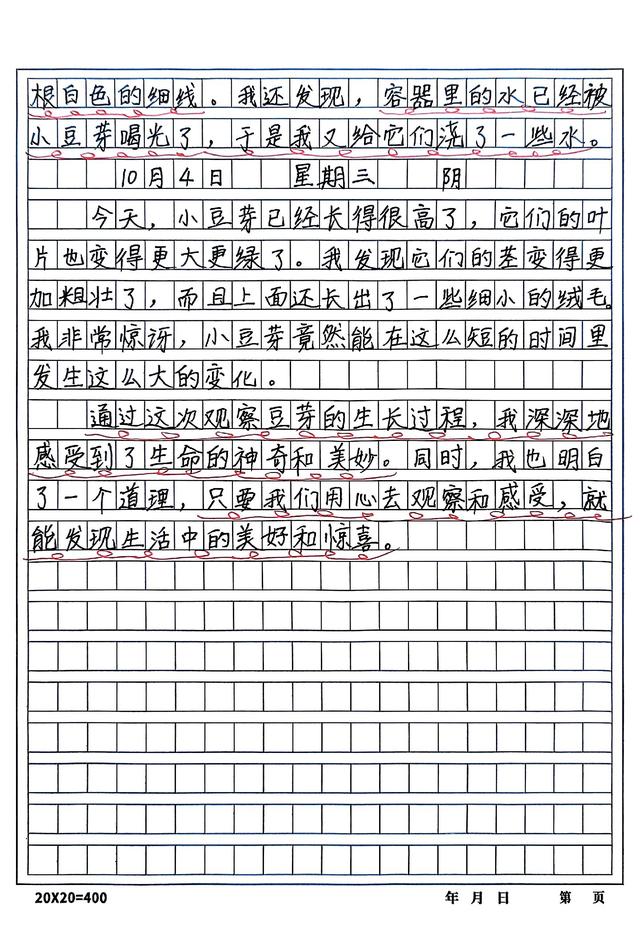 根白色的细线。我还发现，容器里的水已经被
小豆芽喝光了，于是我又给它们浇了一些水。
10月4日 星期三 阴
今天，小豆芽已经长得很高了，它们的叶
片也变得更大更绿了。我发现它们的茎变得更
加粗壮了，而且上面还长出了一些细小的绒毛。
我非常惊讶，小豆芽竟然能在这么短的时间里
发生这么大的变化。
通过这次观察豆芽的生长过程，我深深地
感受到了生命的神奇和美妙。同时，我也明白
了一个道理，只要我们用心去观察和感受，就
能发现生活中的美好和惊喜。
20X20=400 年 月 日 第 页